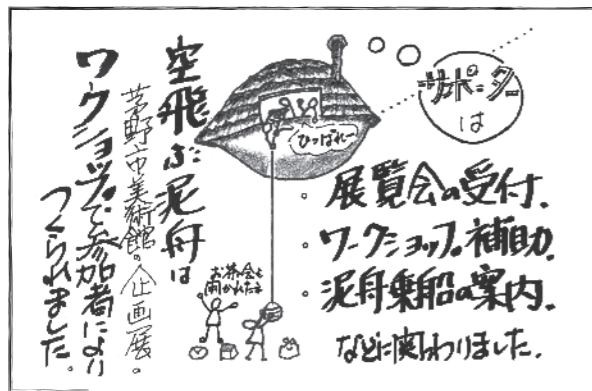 サポーター
は
・展覧会の受付、
・ワークショップ補助、
・泥舟乗船の案内、
などに関わりました。
ひっぱれー
お茶会も
開かれたネ
空飛ぶ泥舟は
茅野市美術館。企画展。
ワークショップで参加者により
つくられました。